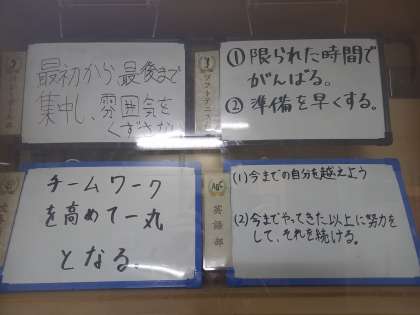 最初から最後まで
集中し、雰囲気を
くずさない
ソフトテニス
① 限られた時間で
がんばる。
② 準備を早くする。
チームワーク
を高めて一丸
となる。
英語部
(1) 今までの自分を越えよう
(2) 今までやってきた以上に努力を
して、それを続ける。